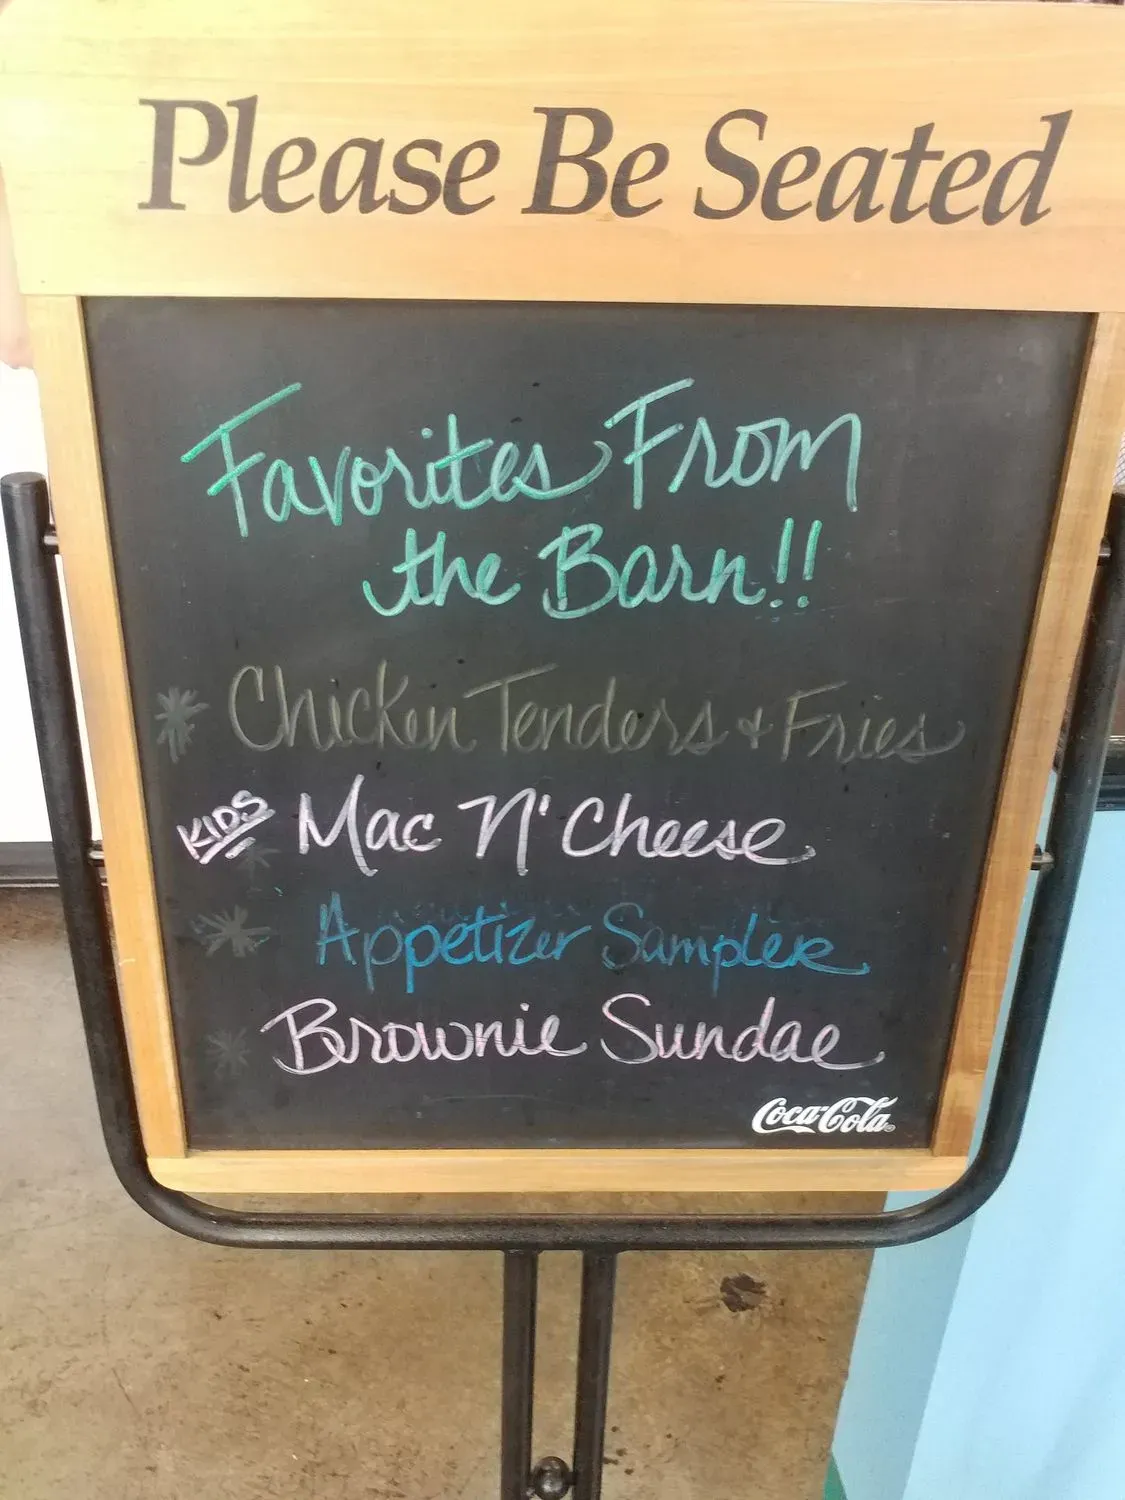 Please Be Seated
Favorites From
the Barn!!
* Chicken Tenders & Fries
KIDS Mac N' Cheese
* Appetizer Sampler
* Brownie Sundae
Coca-Cola